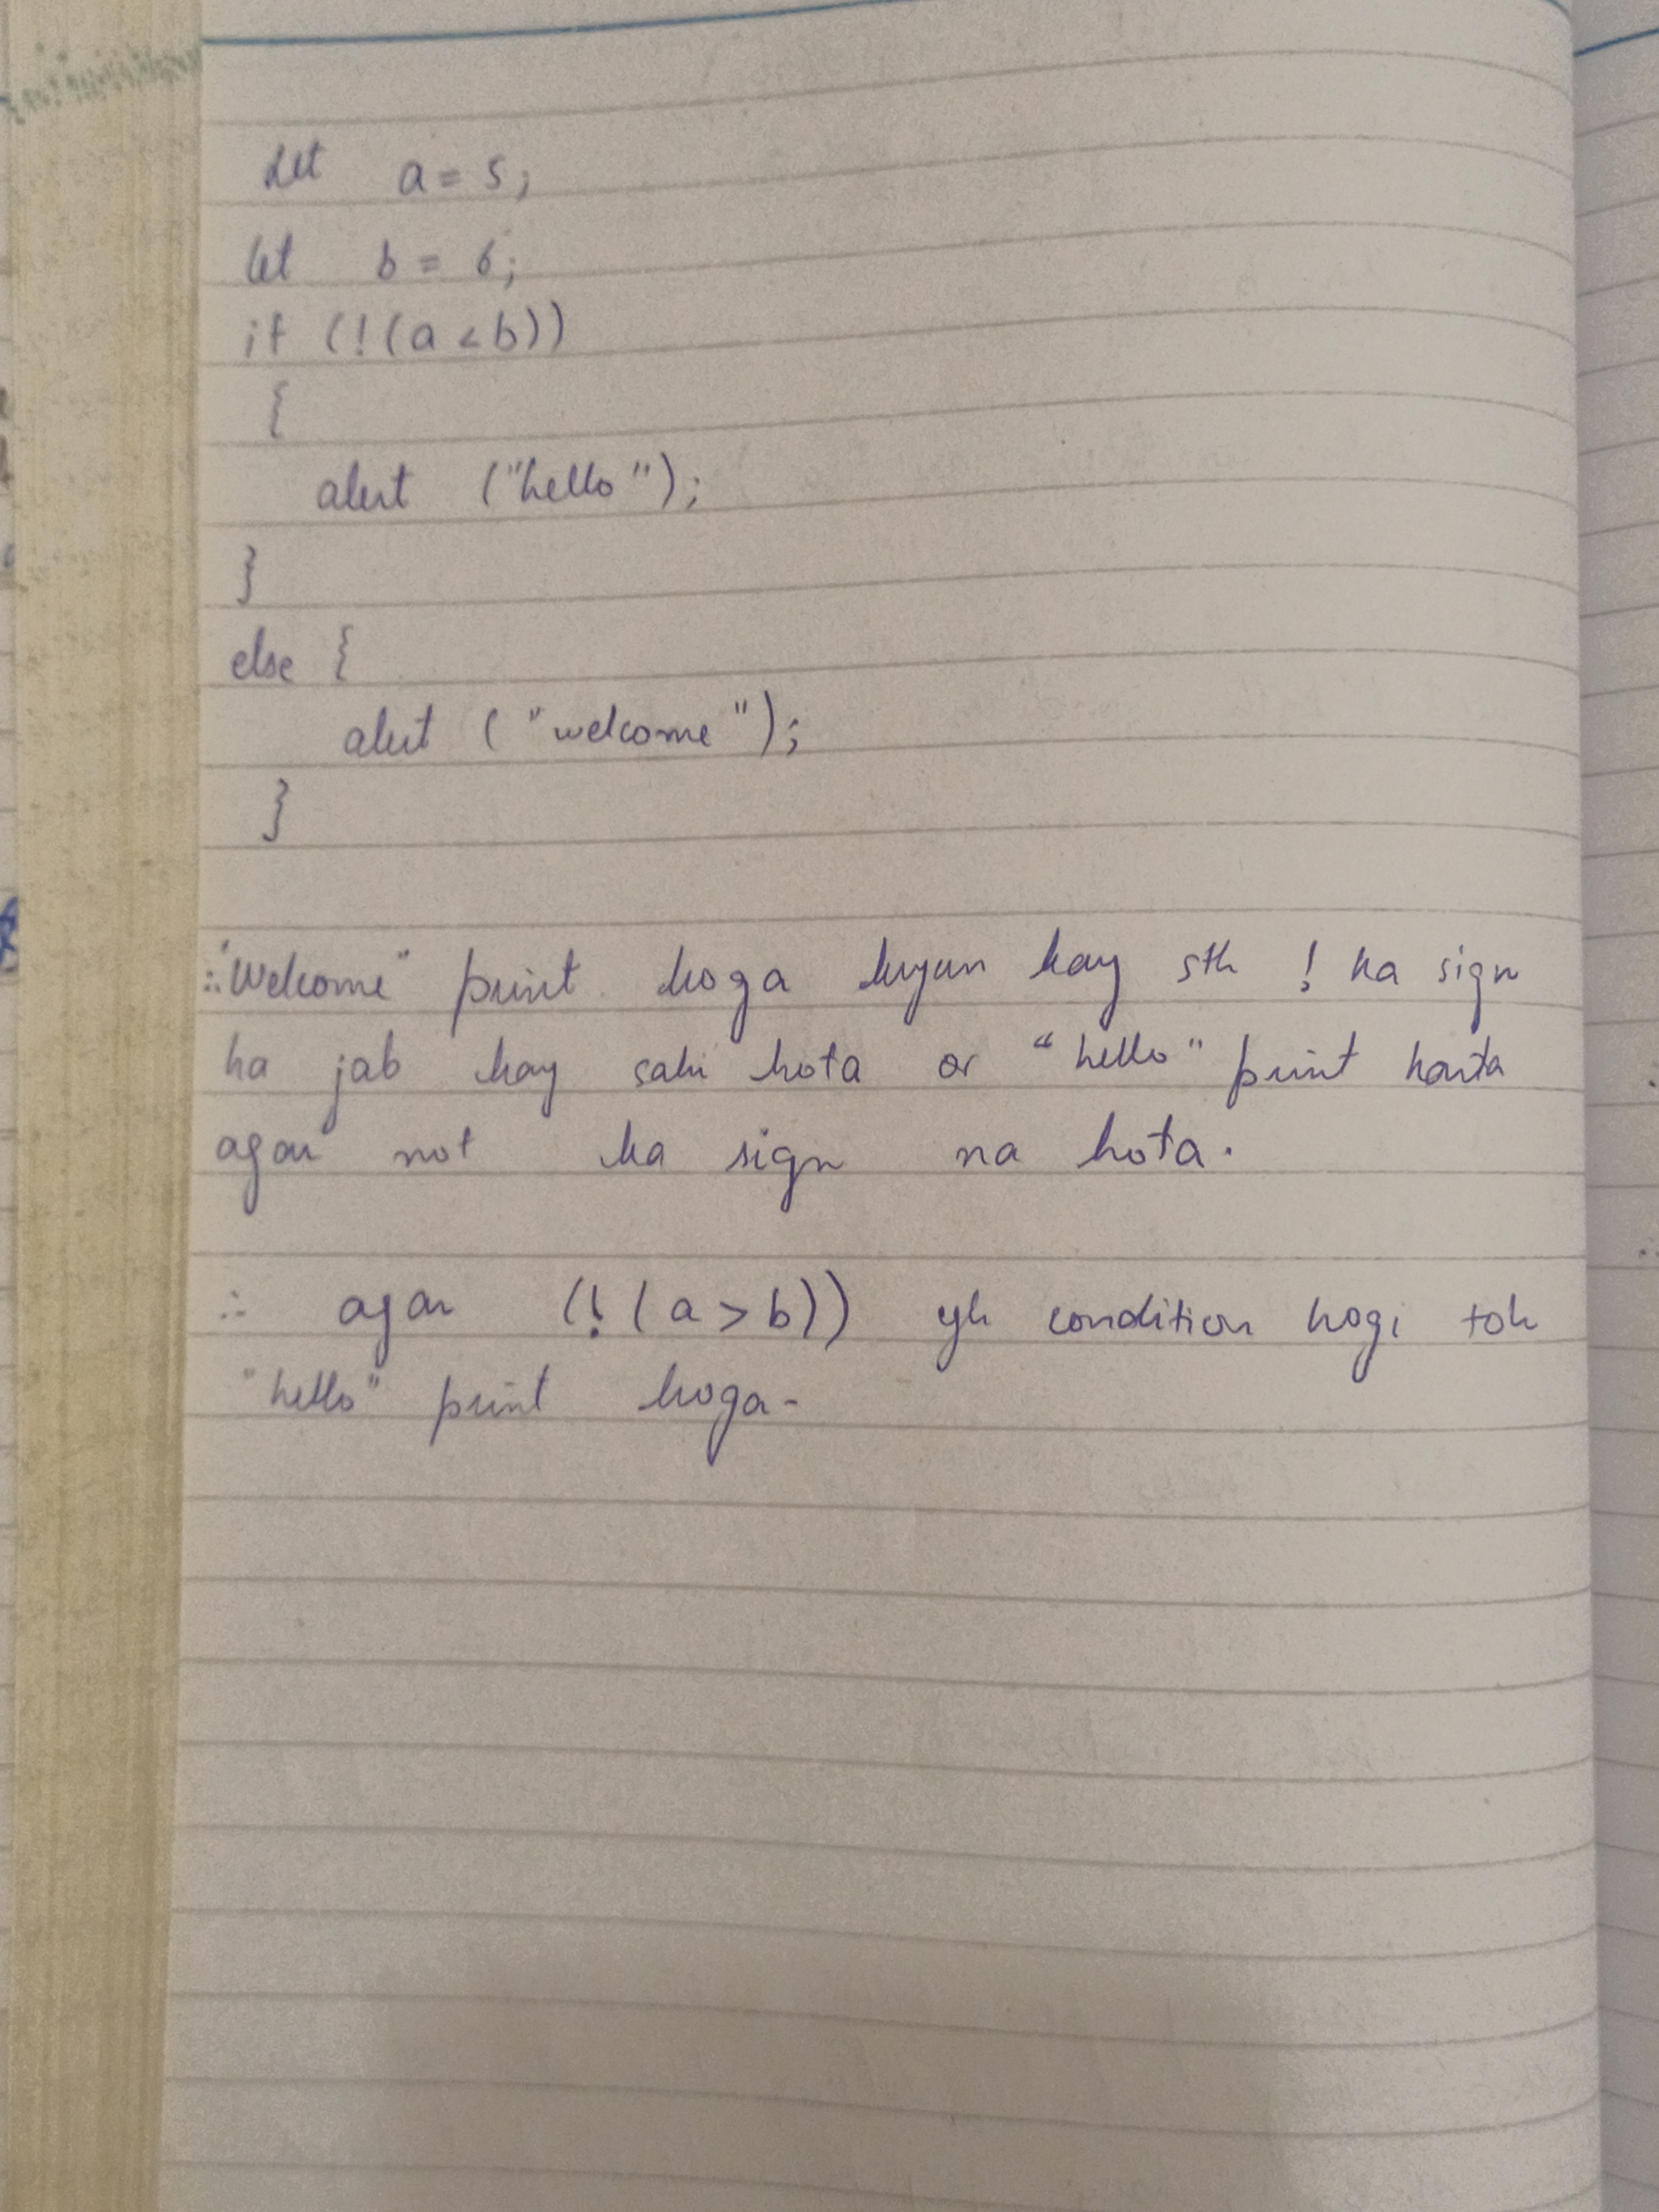 let a = 5;
let b = 6;
if (!(a < b))
{
alert ("hello");
}
else {
alert ("welcome");
}
∴ "Welcome" print hoga kyun kay sth ! ka sign
ha jab kay sahi hota or "hello" print karta
agar not ka sign na hota.
∴ agar (!(a > b)) yh condition hogi toh
"hello" print hoga-